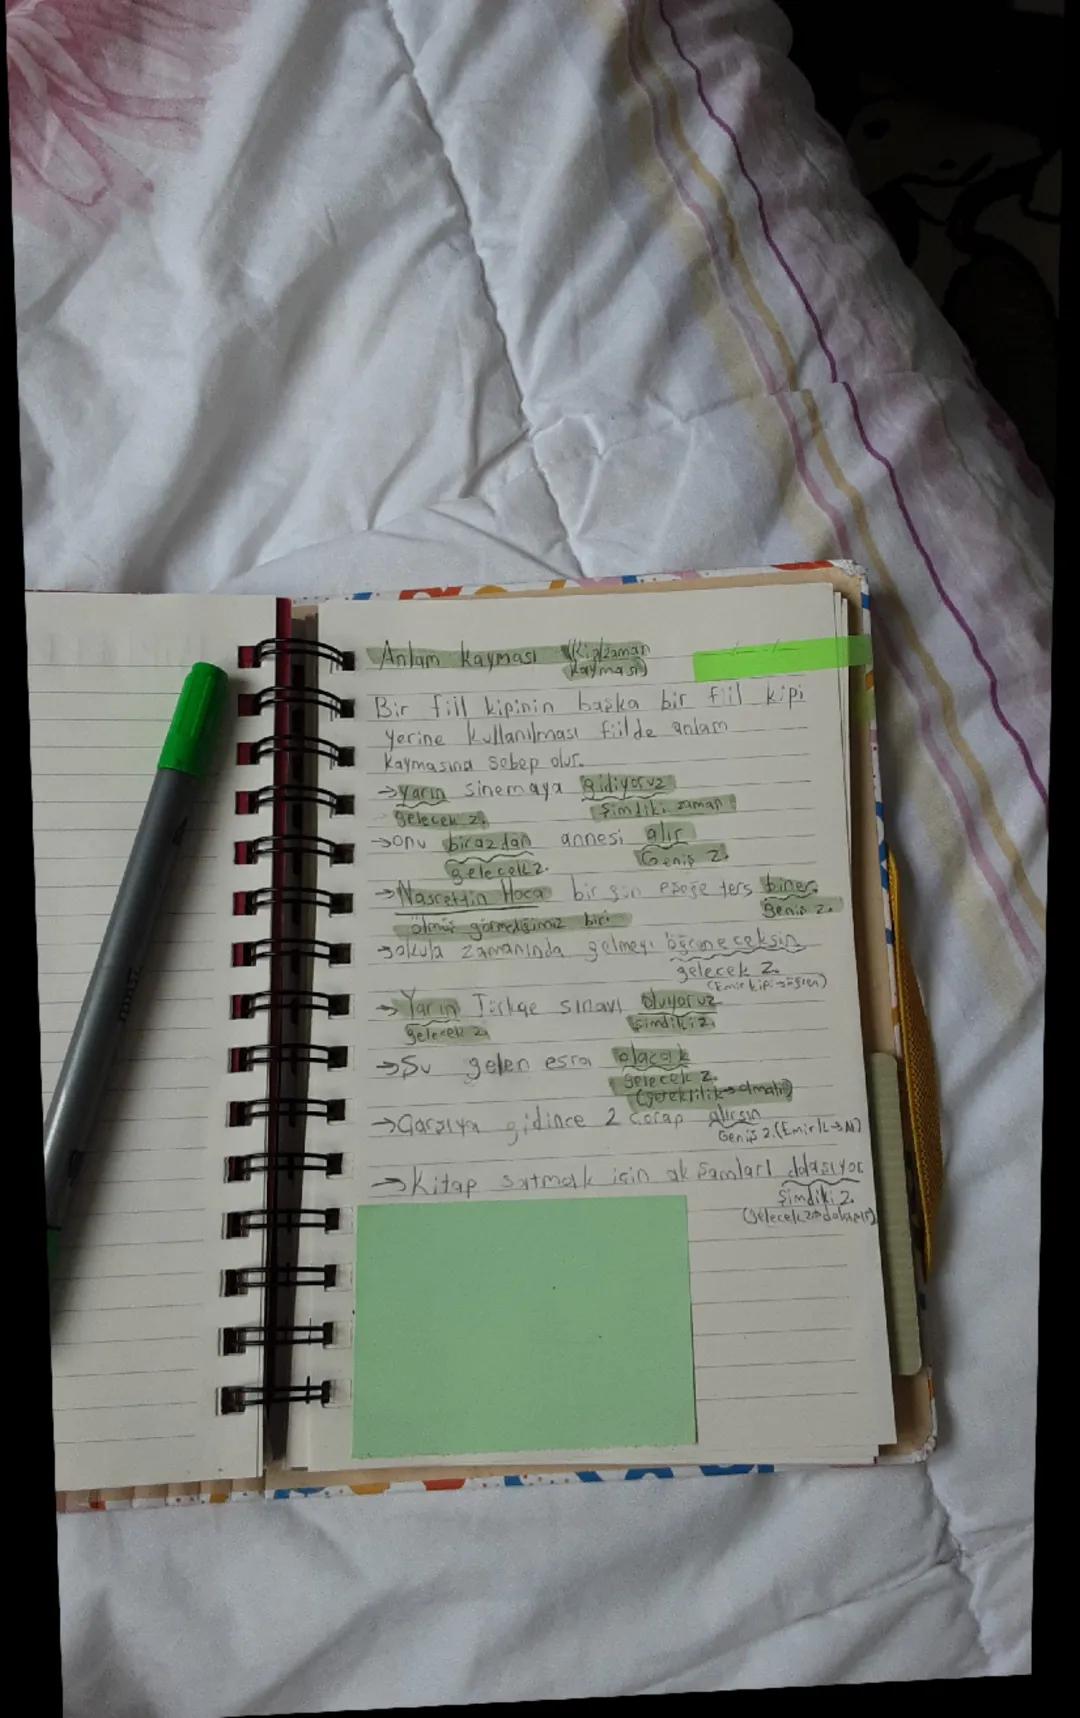 Anlam kayması (Kip/zaman
kayması)
Bir fiil kipinin başka bir fiil kipi
yerine kullanılması fiilde anlam
kaymasına sebep olur.
→Yarın sinemaya gidiyoruz
gelecek z. Şimdiki zaman
→onu birazdan annesi alır
gelecek z. Geniş z.
→Nasrettin Hoca bir gün eşeğe ters biner.
ölmüş görmediğimiz biri Geniş z.
→okula zamanında gelmeyi öğreneceksin
gelecek z.
(Emir kipi→öğren)
→Yarın Türkçe sınavı oluyoruz
gelecek z. Şimdiki z.
→Şu gelen esra olacak
gelecek z.
(gereklilik→olmalı)
→Çarşıya gidince 2 çorap alırsın
Geniş z. (Emir k→Al)
→Kitap satmak için akşamları dolaşıyor
Şimdiki z.